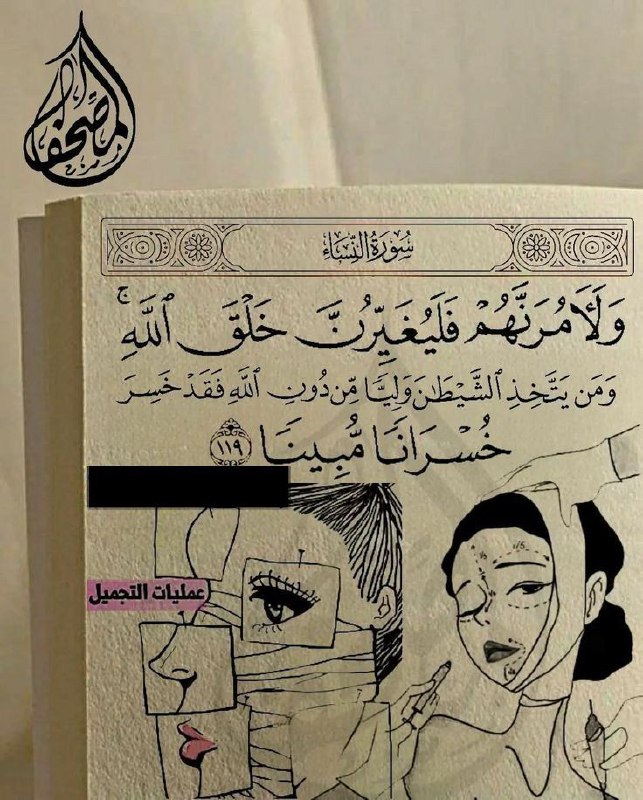 المصحف
سُورَةُ النِّسَاءِ
وَلَأٓمُرَنَّهُمۡ فَلَيُغَيِّرُنَّ خَلۡقَ ٱللَّهِۚ
وَمَن يَتَّخِذِ ٱلشَّيۡطَٰنَ وَلِيّٗا مِّن دُونِ ٱللَّهِ فَقَدۡ خَسِرَ
خُسۡرَانٗا مُّبِينٗا ١١٩
عمليات التجميل